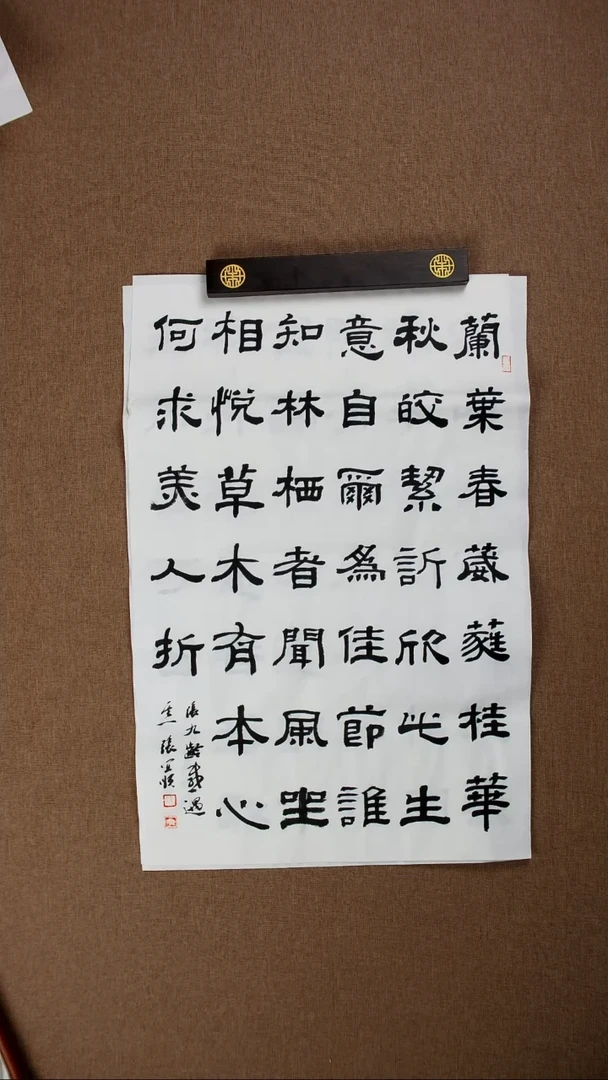 蘭葉春葳蕤桂華
秋皎絜訢欣此生
意自爾為佳節誰
知林栖者聞風坐
相悅草木有本心
何求美人折
張九齡感遇
其一 張